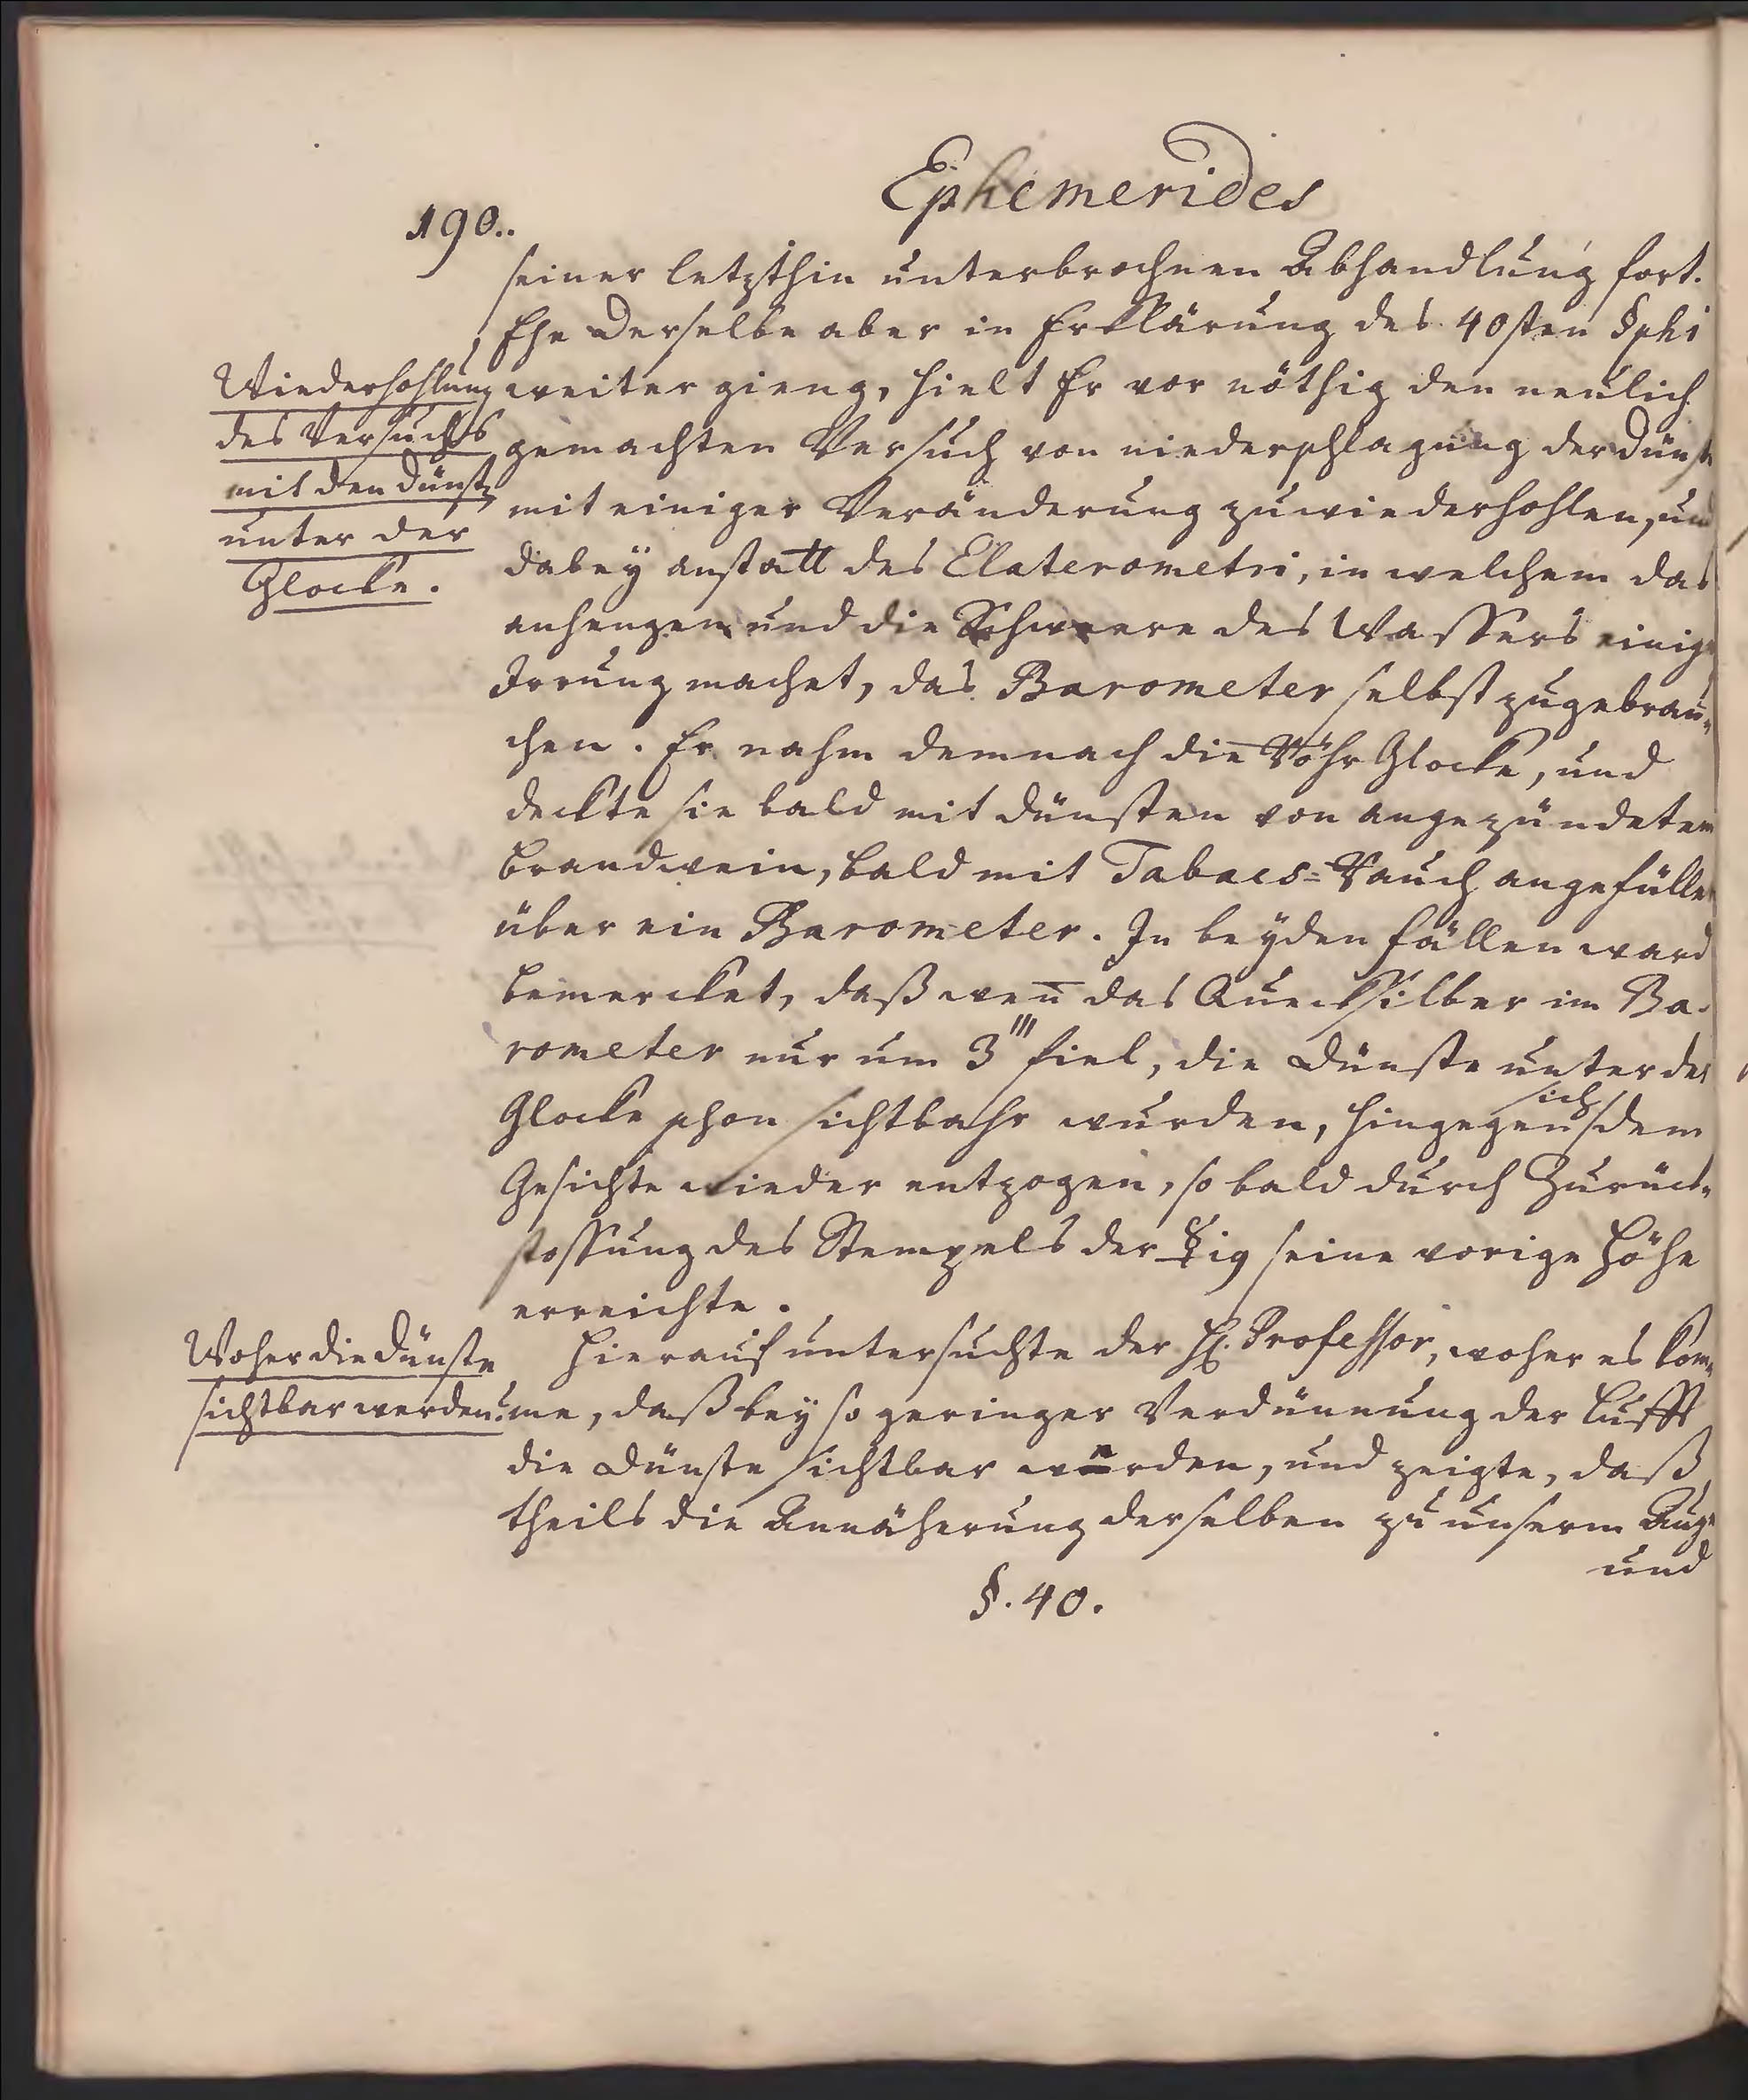 Ephemerides
190..
seiner letzthin unterbrochnen Abhandlung fort.
Ehe Derselbe aber in Erklärung des 40sten §phi
Wiederhohlung
des Versuchs
mit den Dünsten
unter der
Glocke.
weiter gieng, hielt Er vor nöthig den neulich
gemachten Versuch von niederschlagung der Dünste
mit einiger Veränderung zu wiederhohlen, und
dabey anstatt des Elaterometri, in welchem das
anhengen und die Schweere des Wassers einige
Irrung machet, das Barometer selbst zu gebrau-
chen. Er nahm demnach die Röhr Glocke, und
deckte sie bald mit Dünsten von angezündetem
brandwein, bald mit Tabacs-Rauch angefüllet
über ein Barometer. In beyden fällen ward
bemercket, daß weñ das Quecksilber im Ba-
rometer nur um 3''' fiel, die Dünste unter der
Glocke schon sichtbahr wurden, hingegen sich dem
Gesichte wieder entzogen, so bald durch Zurück-
stossung des Stempels der ☿ig seine vorige Höhe
erreichte.
Woher die Dünste
sichtbar werden.
Hierauf untersuchte der H. Professor, woher es kom-
me, daß bey so geringer Verdünnung der Lufft
die Dünste sichtbar werden, und zeigte, daß
theils die Annäherung derselben zu unserm Auge
und
§. 40.